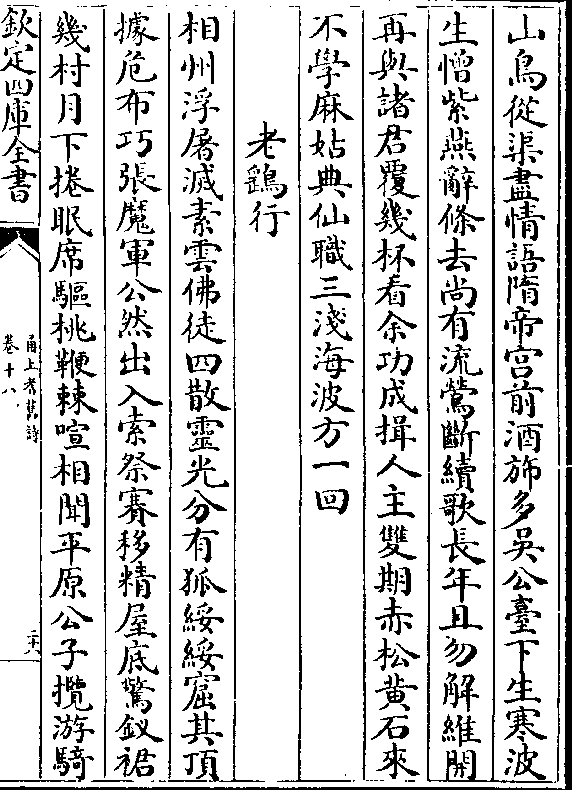 山鳥從渠盡情語隋帝宫前酒斾多吳公臺下生寒波
生憎紫燕辭條去尚有流鶯斷續歌長年且勿解維開
再與諸君覆幾杯看余功成揖人主雙期赤松黄石來
不學麻姑典仙職三淺海波方一回
老鷂行
相州浮屠滅素雲佛徒四散靈光分有狐綏綏窟其頂
據危布巧張魔軍公然出入索祭賽移精屋底驚釵裙
幾村月下捲眠席驅桃鞭棘喧相聞平原公子攬游騎
欽定四庫全書
甬上耆舊詩
卷十八
二十八